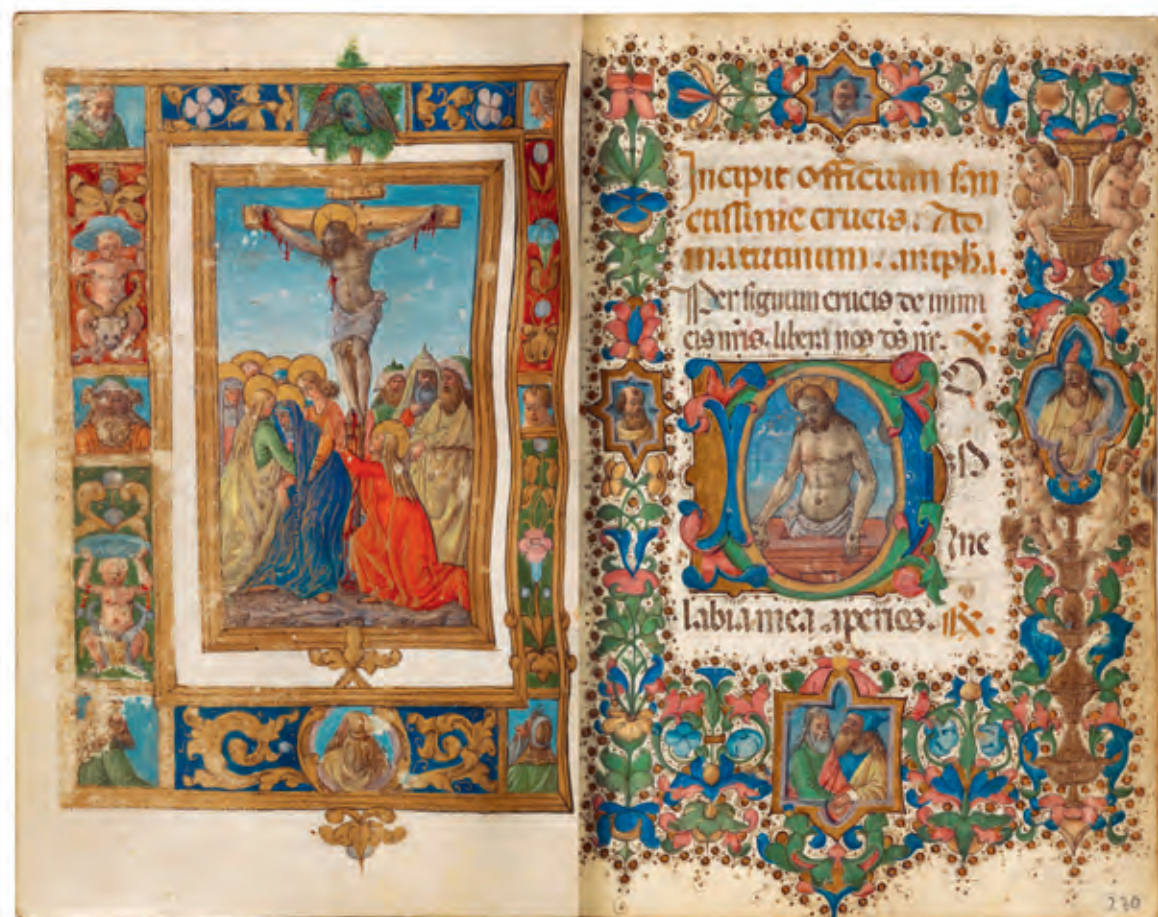 Incipit officium san
ctissime crucis. Ad
matutinum. antipha.
Per signum crucis de inimi
cis nris. libera nos ds nr. V.
D
ne
labia mea aperies. R.
230